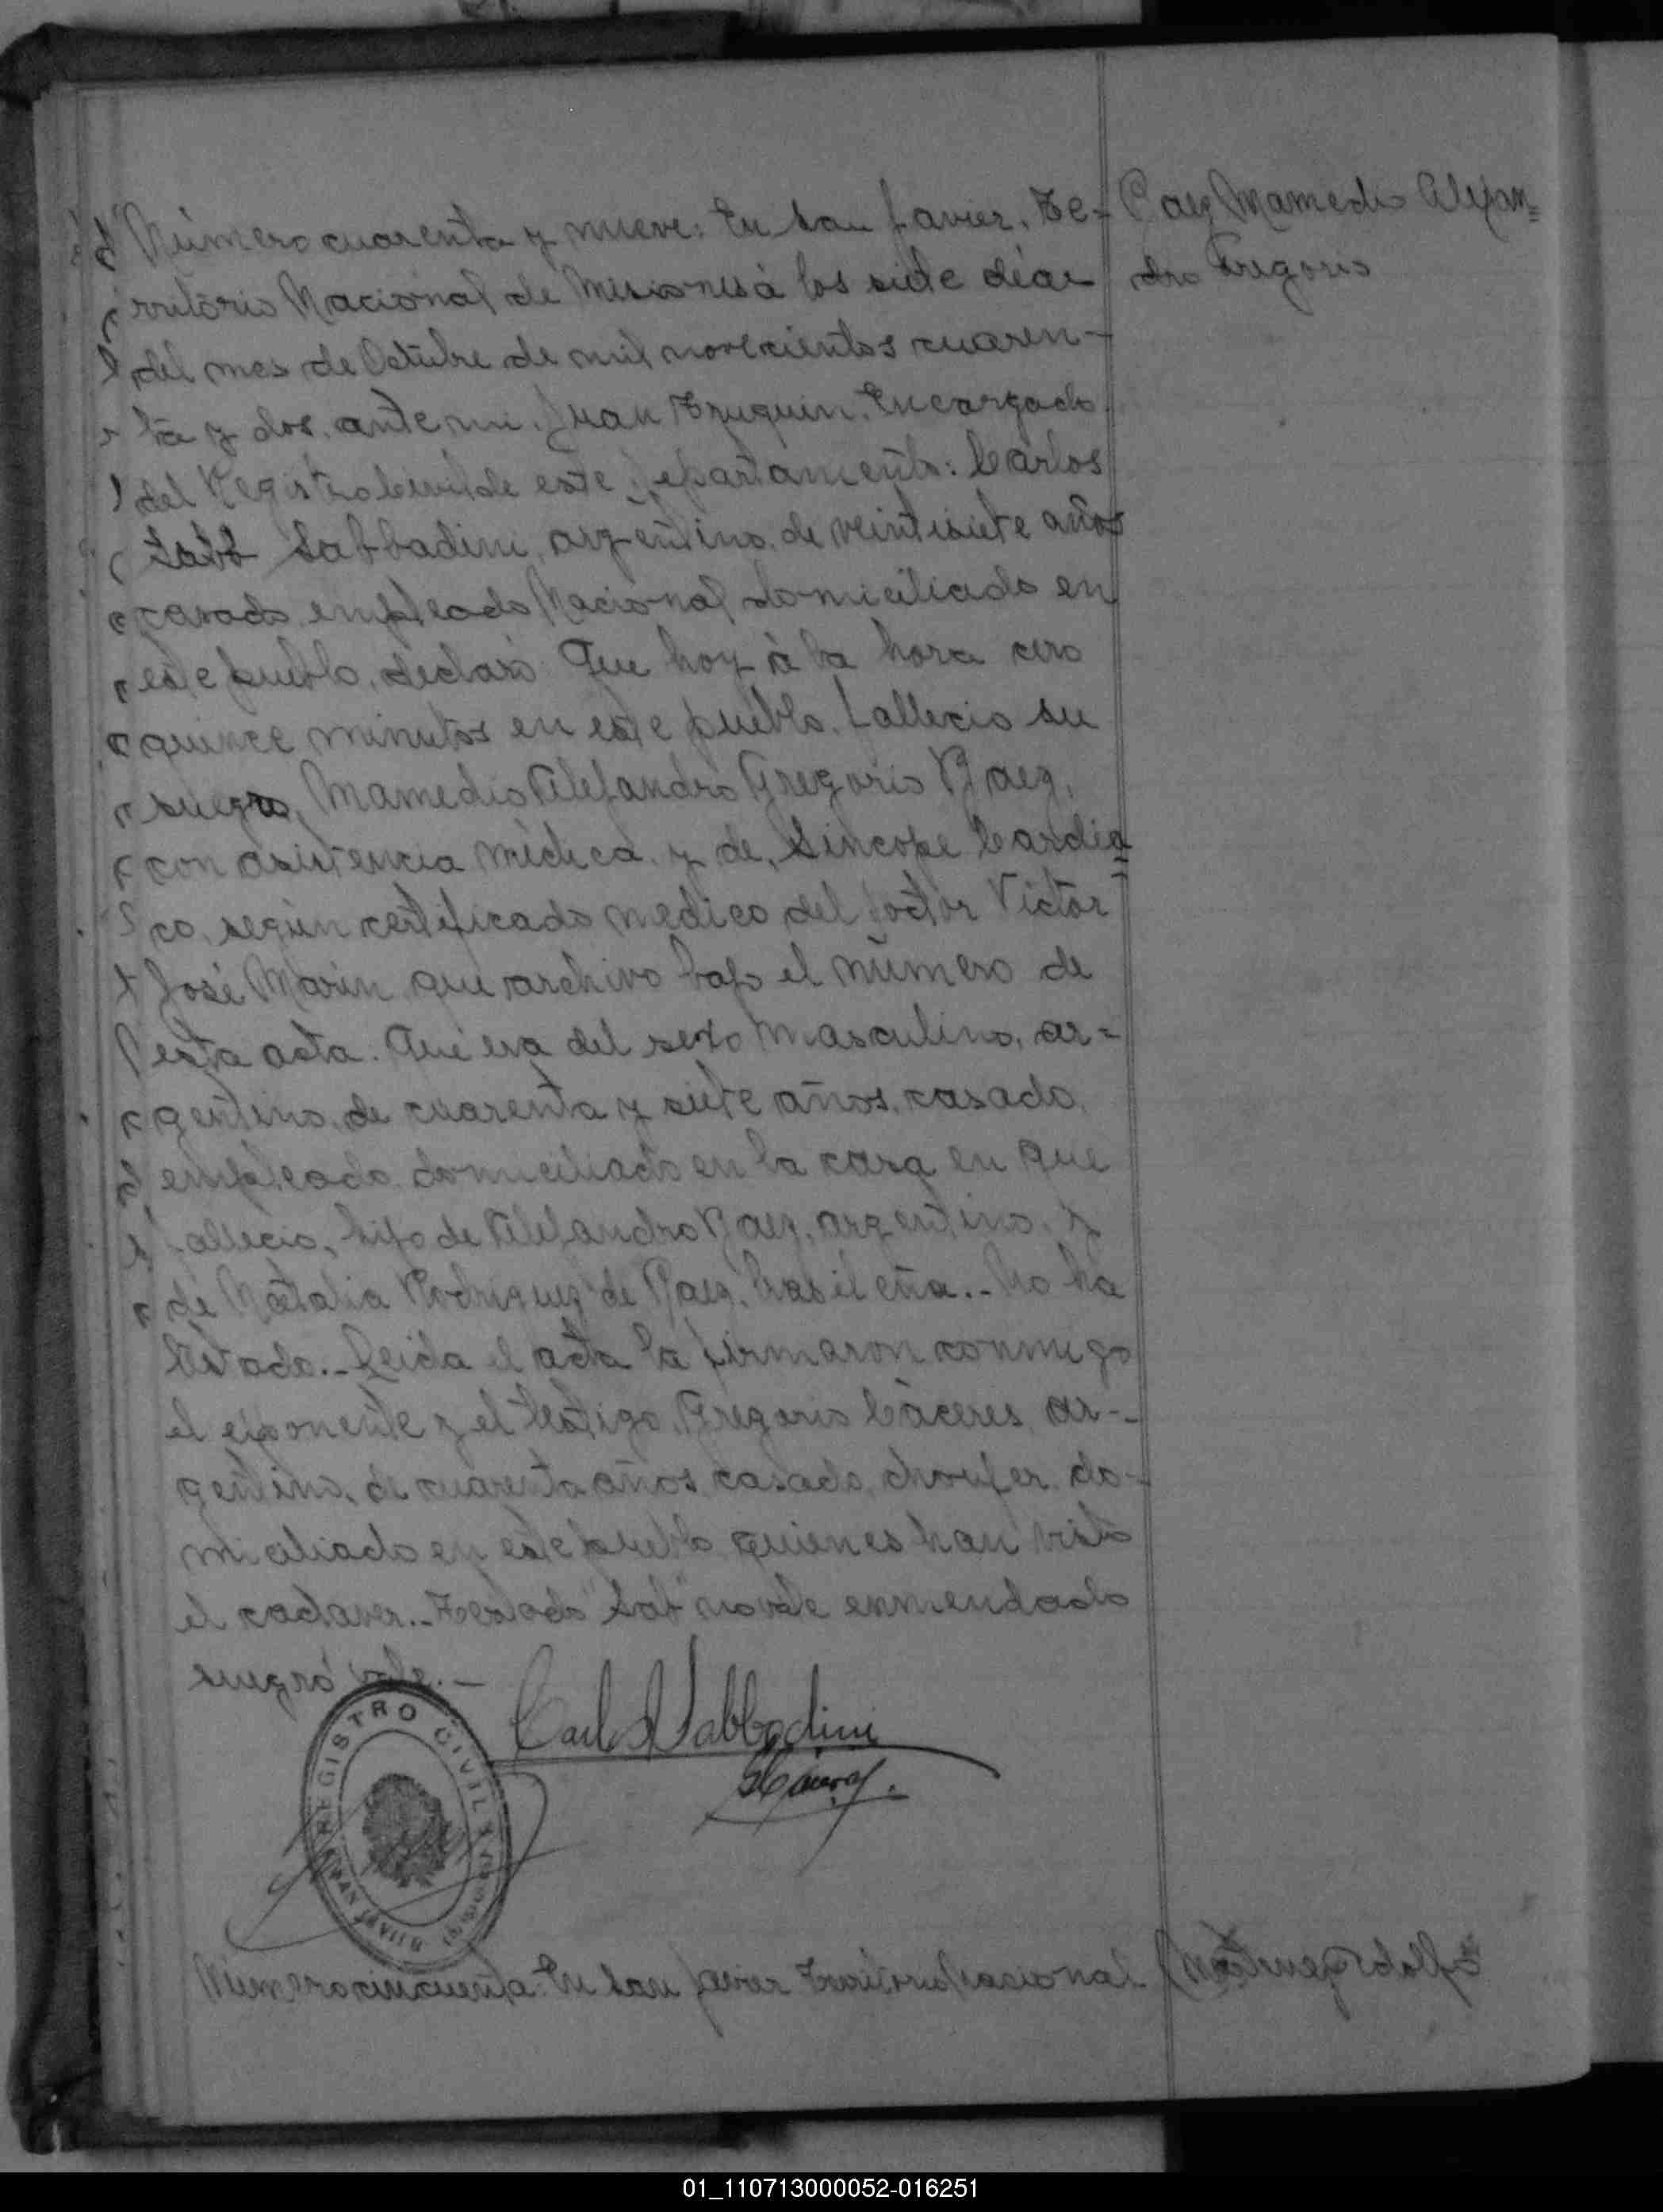 Número cuarenta y nueve: En San Javier, Te-
rritorio Nacional de Misiones á los siete días
del mes de Octubre de mil novecientos cuaren-
ta y dos, ante mi, Juan Encargado
del Registro Civil de este Departamento: Carlos
Sabb Sabbadini, argentino, de veintisiete años
casado, empleado Nacional domiciliado en
este pueblo, declaró: Que hoy á la hora cero
quince minutos en este pueblo, falleció su
suegro, Mamedio Alejandro Gregorio Paez,
con asistencia médica, y de, Sincope Cardia=
co, según certificado medico del doctor Victor
José Marin que archivo bajo el número de
esta acta. Que era del sexo masculino, ar=
gentino, de cuarenta y siete años, casado,
empleado, domiciliado en la casa en que
falleció, hijo de Alejandro Paez, argentino, y
de Natalia Rodriguez de Paez, brasileña.- No ha
testado.- Leida el acta la firmaron conmigo
el exponente y el testigo, Gregorio Cáceres, ar-
gentino, de cuarenta años, casado, choufer, do-
miciliado en este pueblo quienes han visto
el cadaver.- Testado "Sab" no vale enmendado
suegro vale.-
Paez Mamedio Alejan=
dro Gregorio
Carlos Sabbadini
REGISTRO CIVIL
SAN JAVIER
Numero cincuenta: En San Javier Territorio Nacional
01_110713000052-016251